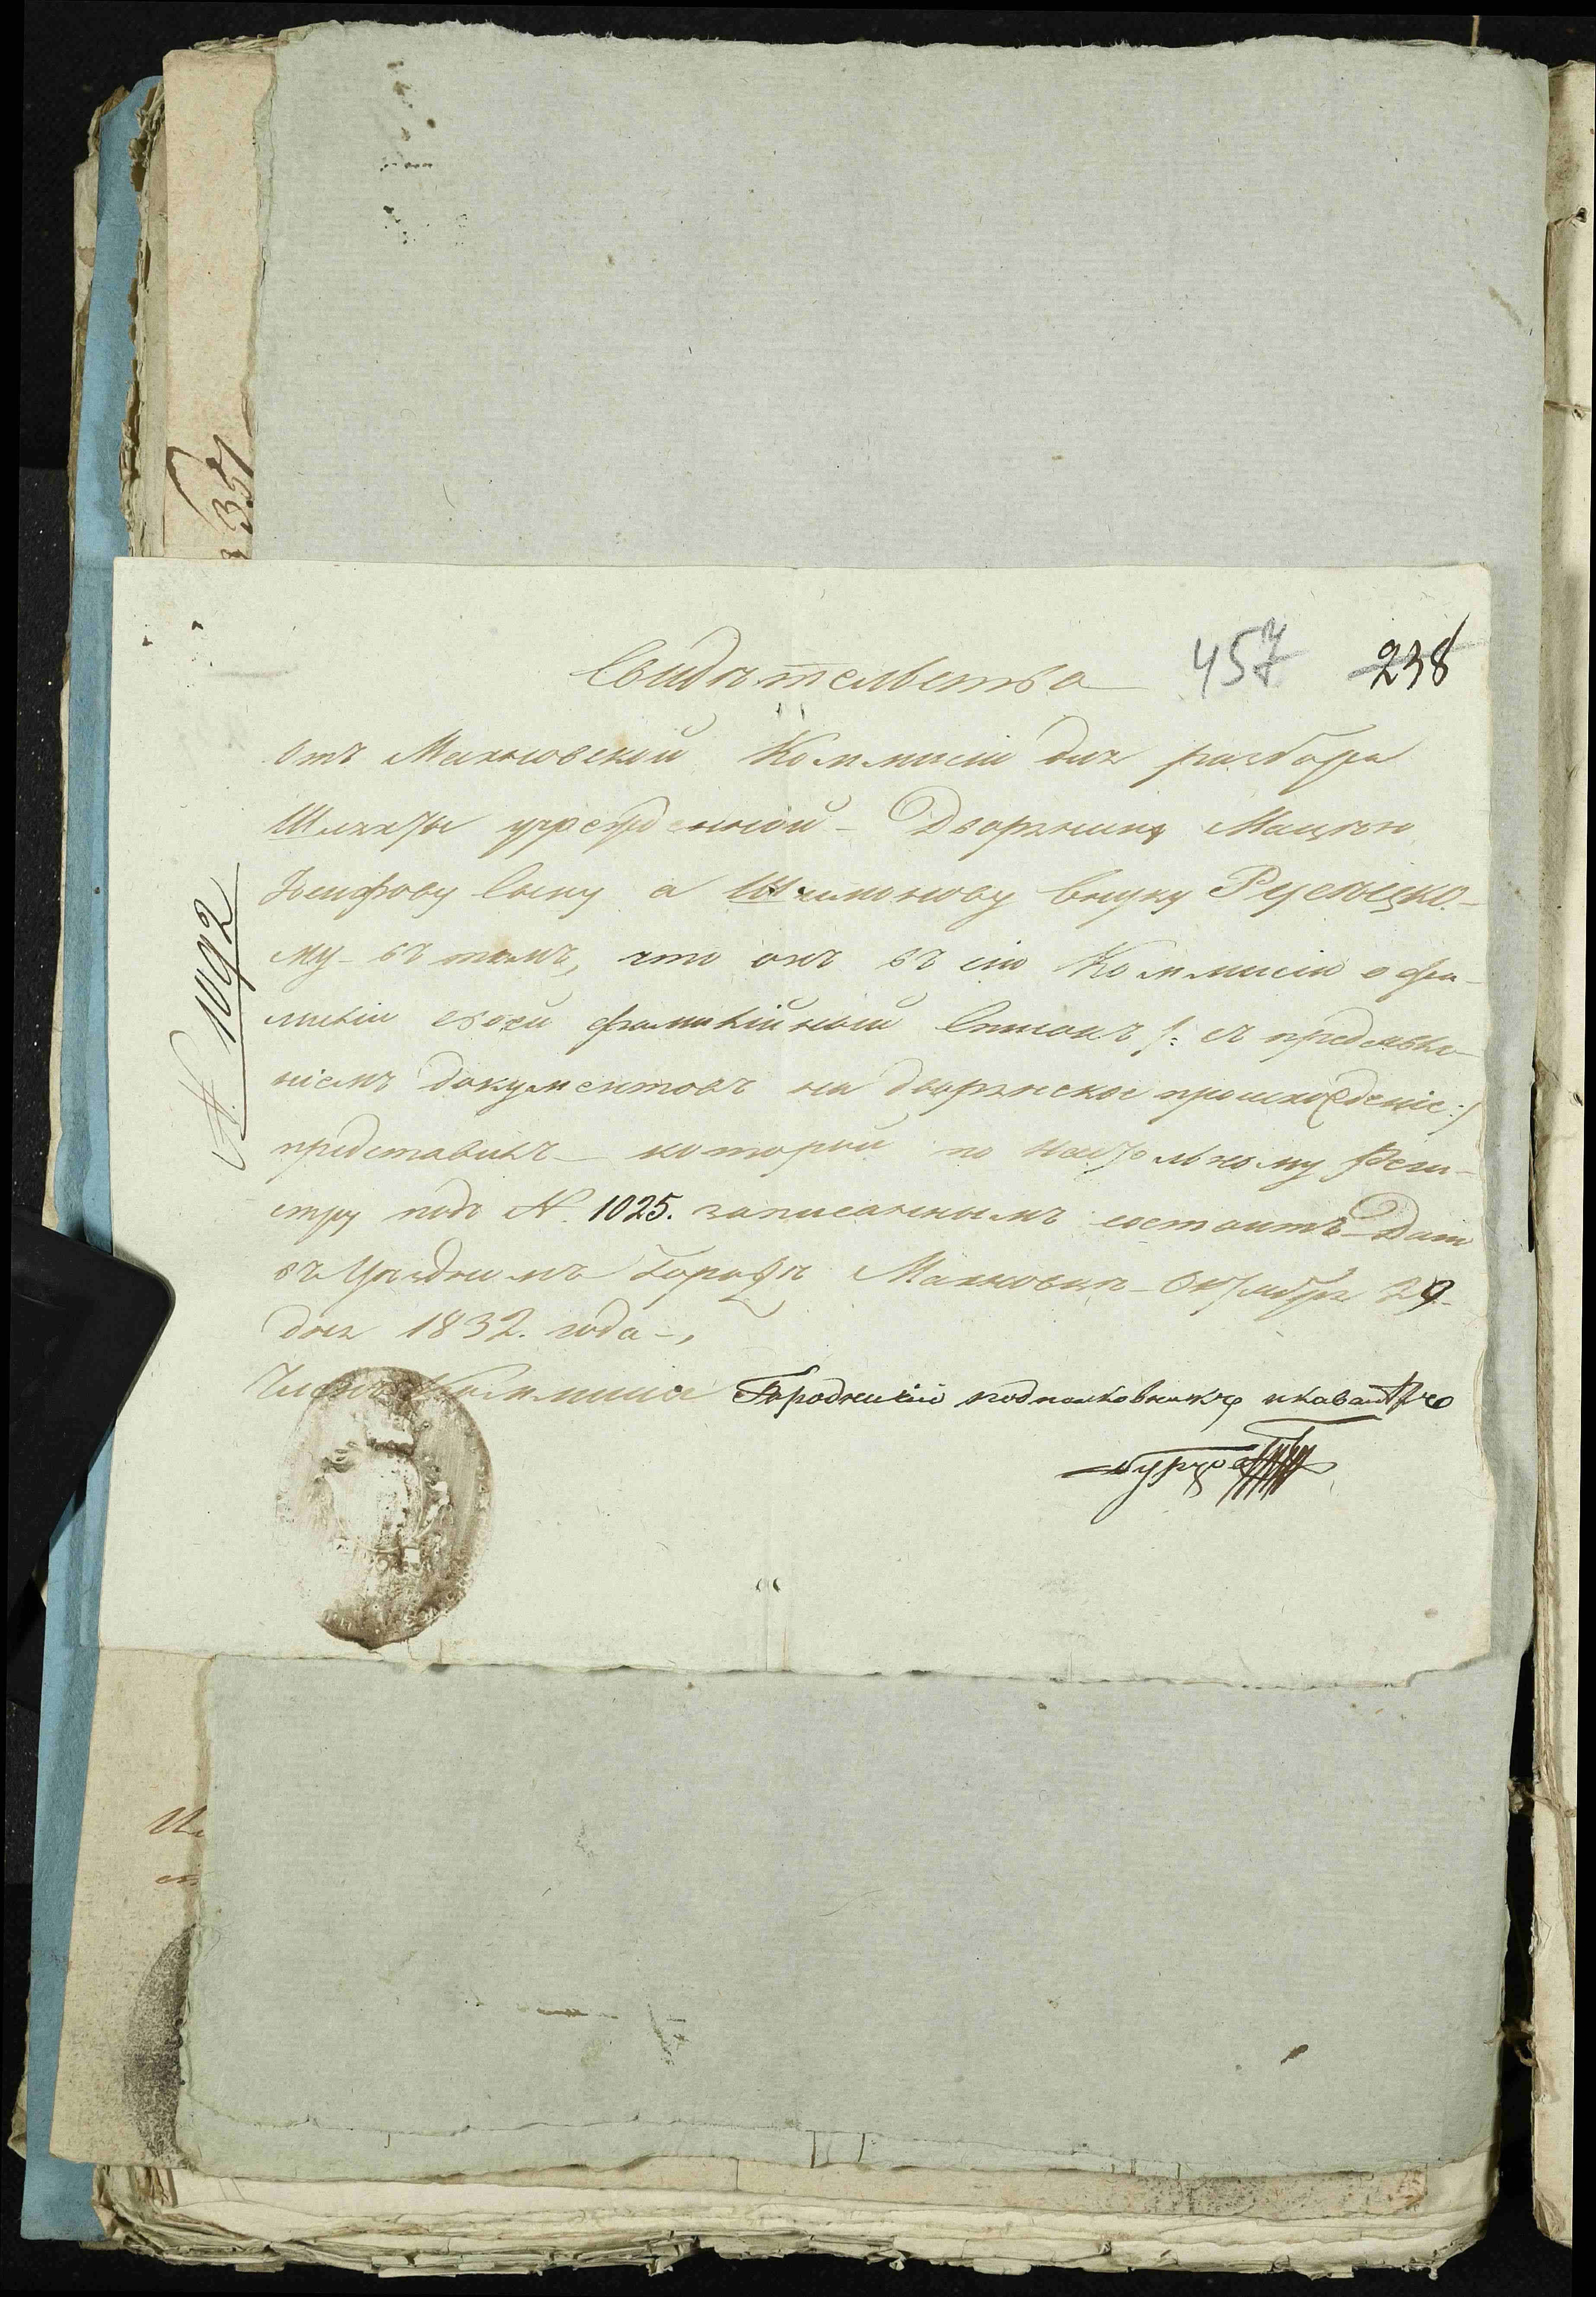 457 238
Свидѣтельство
отъ Махновской Коммисіи для разбора
Шляхты учрежденной – Дворянину Мацѣю
Іосифову Сыну а Шимонову внуку Рущицко-
му – въ томъ, что онъ въ сію Коммисію о фа-
миліи своей фамилійный Списокъ /: съ предъявле-
ніемъ документовъ на дворянское происхожденіе :/
представилъ – которой по настольному Реги-
стру подъ № 1025. записаннымъ состоитъ – Дано
въ Уѣздномъ Городѣ Махновкѣ – Октября 29
дня 1832. года –,
Членъ Коммисіи Городничій подполковникъ и кавалеръ
№ 1092
351